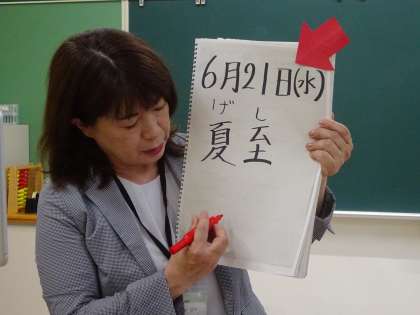 6月21日(水)
げ し
夏 至